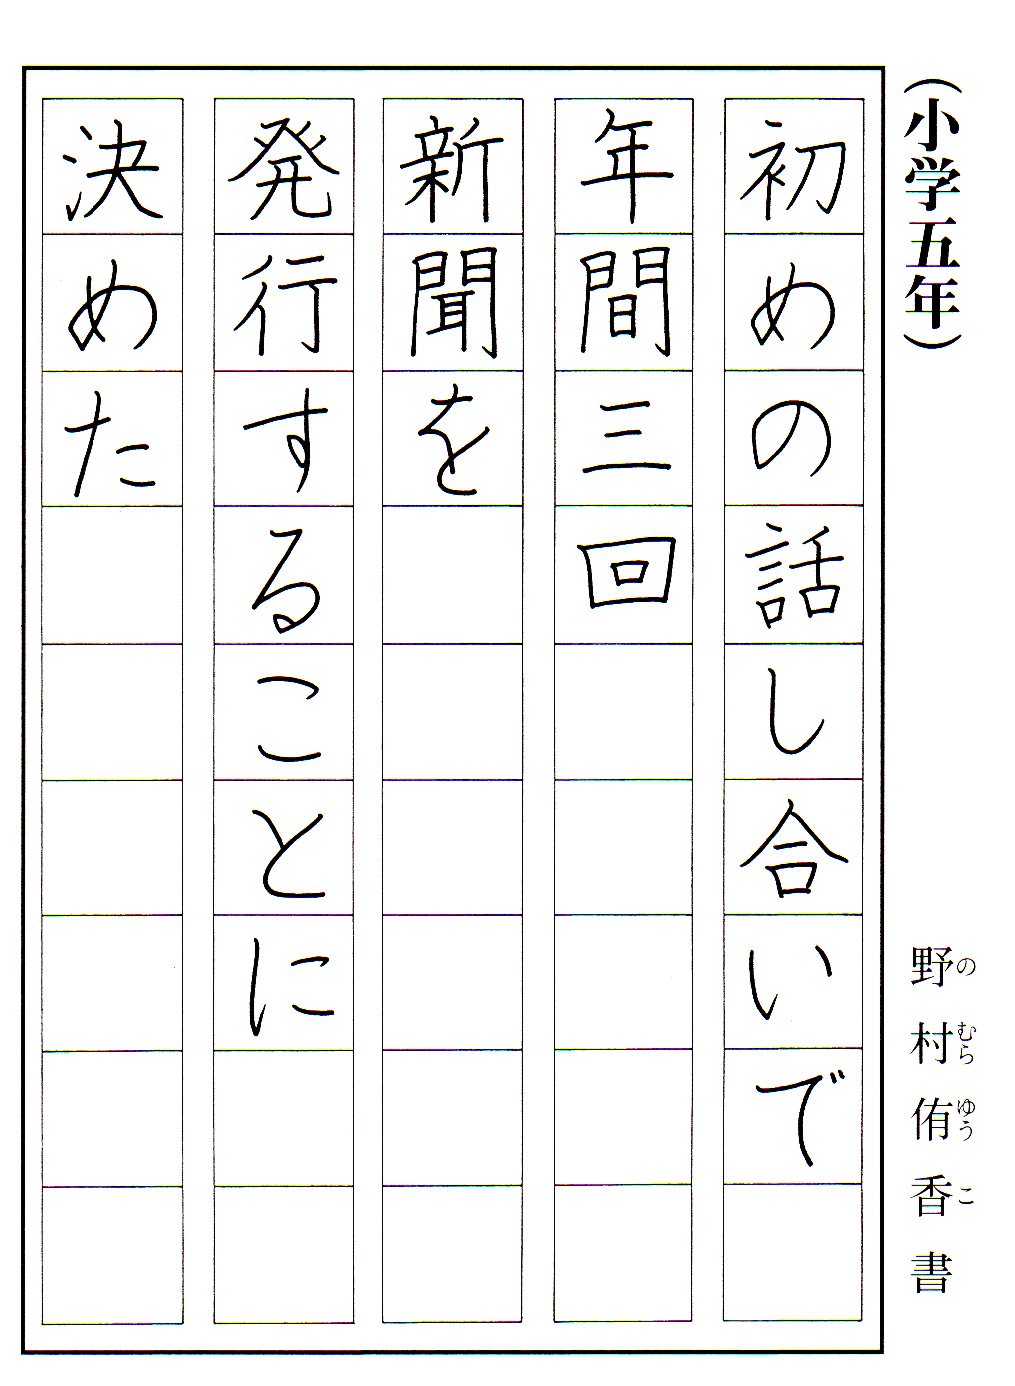 （小学五年）
野村侑香書
のむらゆうこ
初めの話し合いで
年間三回
新聞を
発行することに
決めた